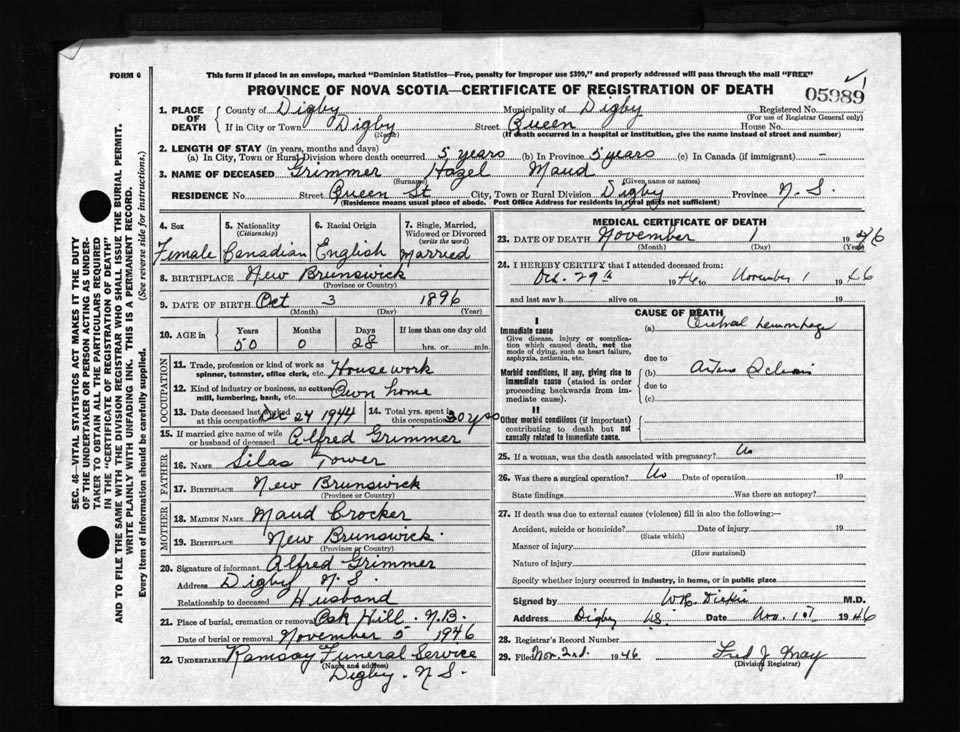 FORM 6
This form if placed in an envelope, marked "Dominion Statistics—Free, penalty for improper use $300," and properly addressed will pass through the mail "FREE"
PROVINCE OF NOVA SCOTIA—CERTIFICATE OF REGISTRATION OF DEATH
05989
1. PLACE OF DEATH
County of Digby Municipality of Digby Registered No.
(For use of Registrar General only)
If in City or Town Digby Street Queen House No.
(Name) (If death occurred in a hospital or institution, give the name instead of street and number)
2. LENGTH OF STAY (in years, months and days)
(a) In City, Town or Rural Division where death occurred 5 years (b) In Province 5 years (c) In Canada (if immigrant) –
3. NAME OF DECEASED Grimmer Hazel Maud
(Surname) (Given name or names)
RESIDENCE No. Street Queen St City, Town or Rural Division Digby Province N. S.
(Residence means usual place of abode. Post Office Address for residents in rural parts not sufficient)
4. Sex
Female
5. Nationality
(Citizenship)
Canadian
6. Racial Origin
English
7. Single, Married, Widowed or Divorced
(write the word)
Married
8. BIRTHPLACE New Brunswick
(Province or Country)
9. DATE OF BIRTH Oct 3 1896
(Month) (Day) (Year)
10. AGE in
Years Months Days If less than one day old
50 0 28 hrs. or min.
OCCUPATION
11. Trade, profession or kind of work as
spinner, teamster, office clerk, etc. Housework
12. Kind of industry or business, as cotton
mill, lumbering, bank, etc. Own home
13. Date deceased last worked
at this occupation Oct 24 1944
14. Total yrs. spent in
this occupation 30 yrs
15. If married give name of wife
or husband of deceased Alfred Grimmer
FATHER
16. NAME Silas Tower
17. BIRTHPLACE New Brunswick
(Province or Country)
MOTHER
18. MAIDEN NAME Maud Crocker
19. BIRTHPLACE New Brunswick.
(Province or Country)
20. Signature of informant Alfred Grimmer
Address Digby N. S.
Relationship to deceased Husband
21. Place of burial, cremation or removal Oak Hill. N.B.
Date of burial or removal November 5 1946
22. UNDERTAKER Ramsay Funeral Service
(Name and address)
Digby. N S.
MEDICAL CERTIFICATE OF DEATH
23. DATE OF DEATH November 1 1946
(Month) (Day) (Year)
24. I HEREBY CERTIFY that I attended deceased from:
Oct. 29th 1946 to November 1 1946
and last saw h alive on 19
CAUSE OF DEATH
I
Immediate cause
Give disease, injury or complication which caused death, not the mode of dying, such as heart failure, asphyxia, asthenia, etc.
(a) hemorrhage
due to
Morbid conditions, if any, giving rise to immediate cause (stated in order proceeding backwards from immediate cause).
(b)
due to
(c)
II
Other morbid conditions (if important) contributing to death but not causally related to immediate cause.
25. If a woman, was the death associated with pregnancy? No
26. Was there a surgical operation? No Date of operation 19
State findings Was there an autopsy?
27. If death was due to external causes (violence) fill in also the following:—
Accident, suicide or homicide? Date of injury 19
(State which)
Manner of injury
(How sustained)
Nature of injury
Specify whether injury occurred in industry, in home, or in public place
Signed by M.D.
Address Digby NS. Date Nov. 1st 1946
28. Registrar's Record Number
29. Filed Nov. 2nd. 1946 Fred J. May
(Division Registrar)
SEC. 46—VITAL STATISTICS ACT MAKES IT THE DUTY
OF THE UNDERTAKER OR PERSON ACTING AS UNDER-
TAKER TO OBTAIN ALL THE PARTICULARS REQUIRED
IN THE "CERTIFICATE OF REGISTRATION OF DEATH"
AND TO FILE THE SAME WITH THE DIVISION REGISTRAR WHO SHALL ISSUE THE BURIAL PERMIT.
WRITE PLAINLY WITH UNFADING INK. THIS IS A PERMANENT RECORD.
Every item of information should be carefully supplied. (See reverse side for instructions.)